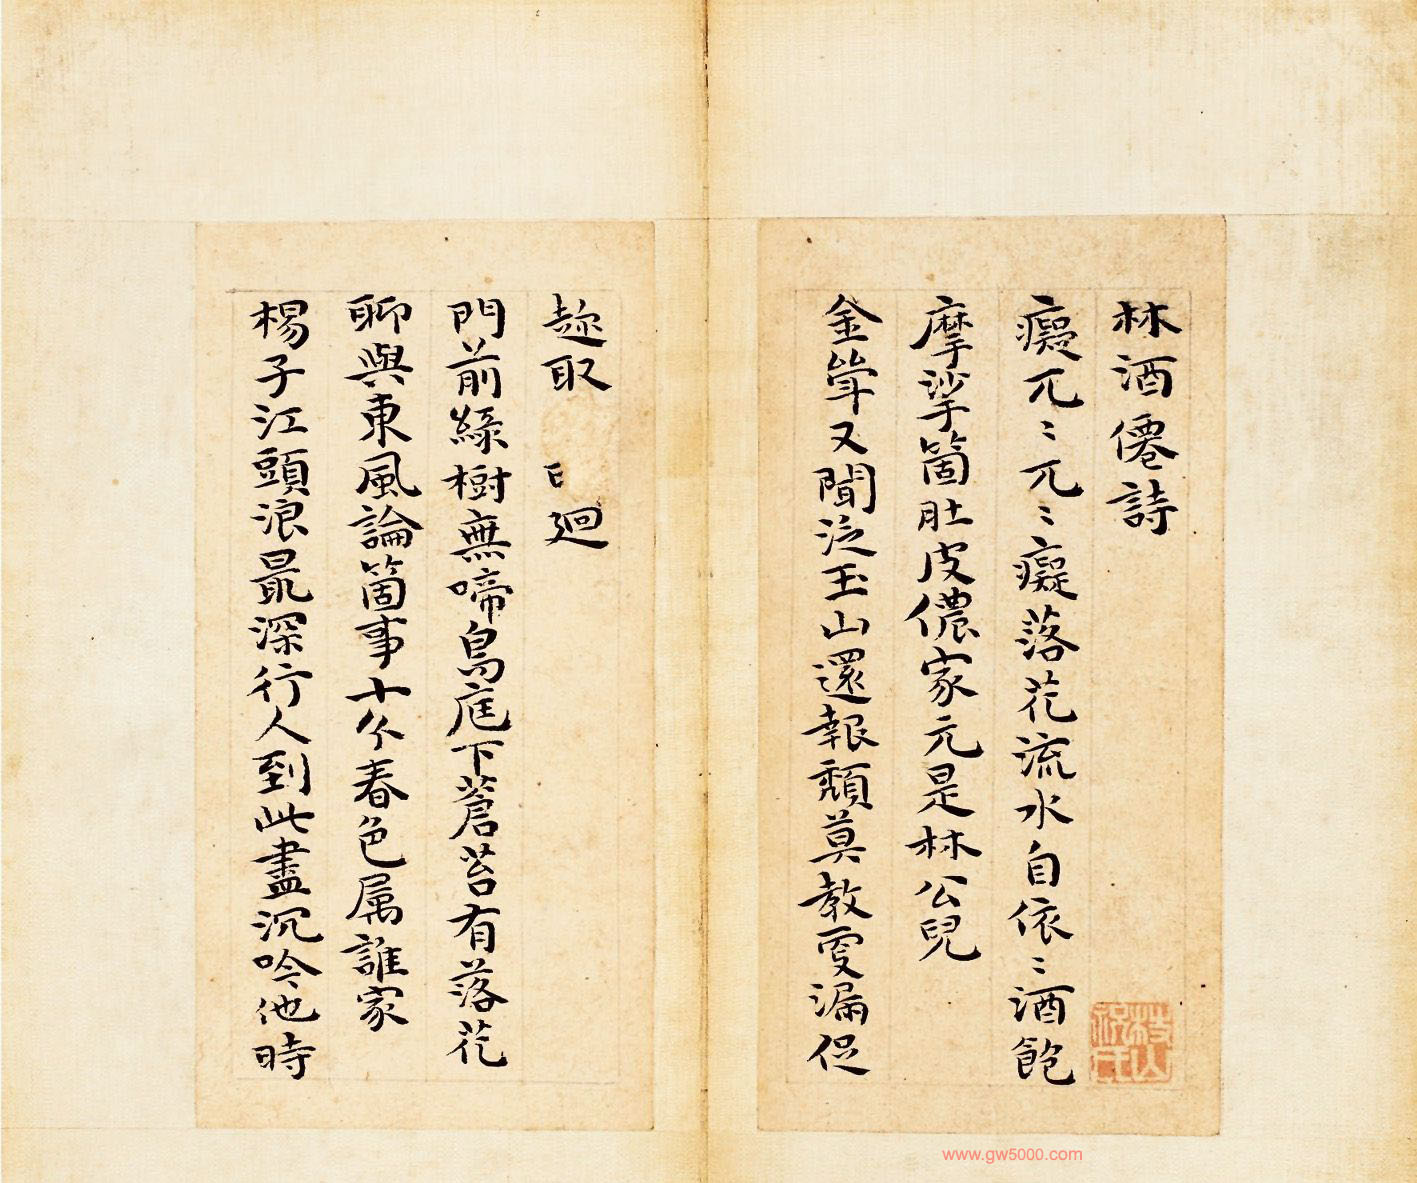 林酒僊詩
癡兀〻兀〻癡落花流水自依〻酒飽
摩挲箇肚皮儂家元是林公兒
金斝又聞泛玉山還報頽莫教更漏促
枝山祝氏
趂取廻
門前綠樹無啼鳥庭下蒼苔有落花
聊與東風論箇事十分春色属誰家
楊子江頭浪最深行人到此盡沉吟他時
www.gw5000.com